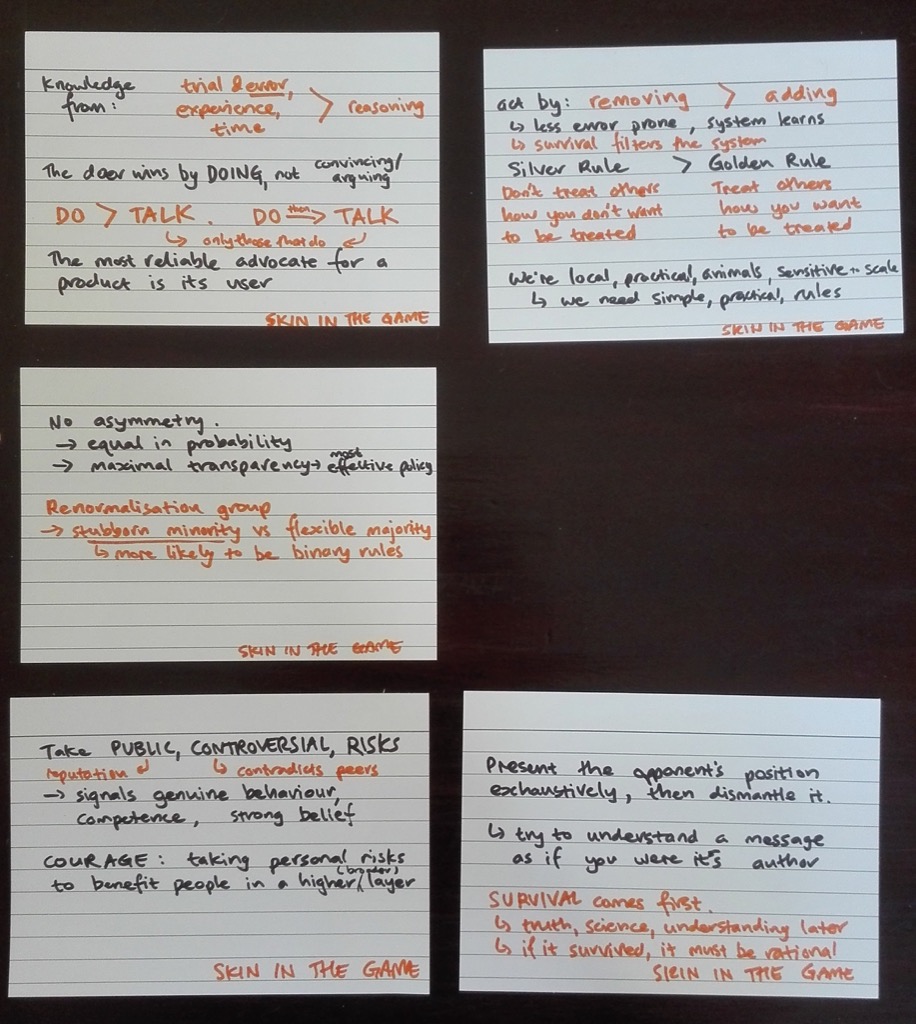 Knowledge from: trial & error, experience, time > reasoning
The doer wins by DOING, not convincing/arguing
DO > TALK. DO then⇒ TALK
↳ only those that do ↲
The most reliable advocate for a
product is its user
SKIN IN THE GAME
act by: removing > adding
↳ less error prone, system learns
↳ survival filters the system
Silver Rule > Golden Rule
Don't treat others how you don't want to be treated
Treat others how you want to be treated
We're local, practical, animals, sensitive to scale
↳ we need simple, practical, rules
SKIN IN THE GAME
No asymmetry.
→ equal in probability
→ maximal transparency → most effective policy
Renormalisation group
→ stubborn minority vs flexible majority
↳ more likely to be binary rules
SKIN IN THE GAME
Take PUBLIC, CONTROVERSIAL, RISKS
reputation ↲ ↳ contradicts peers
→ signals genuine behaviour,
competence, strong belief
COURAGE: taking personal risks
to benefit people in a higher/(broader) layer
SKIN IN THE GAME
Present the opponent's position
exhaustively, then dismantle it.
↳ try to understand a message
as if you were it's author
SURVIVAL comes first.
↳ truth, science, understanding later
↳ if it survived, it must be rational
SKIN IN THE GAME